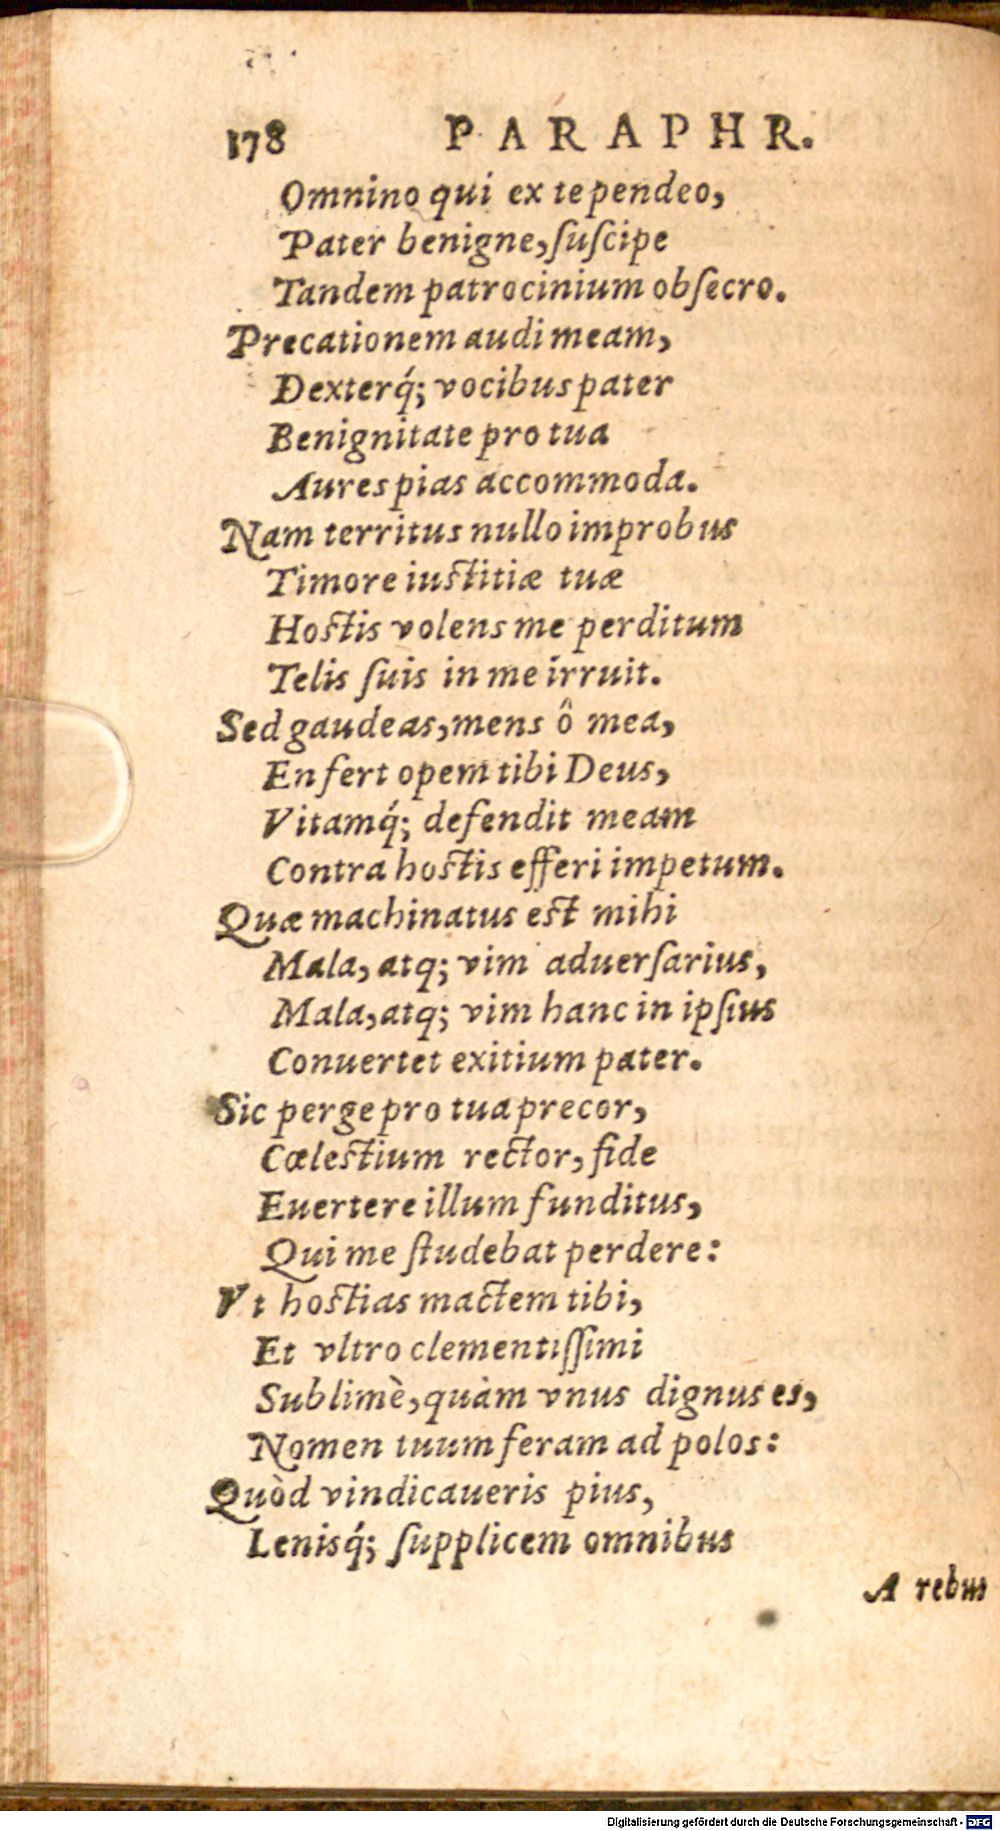 178 PARAPHR.
Omnino qui ex te pendeo,
Pater benigne, ſuſcipe
Tandem patrocinium obſecro.
Precationem audi meam,
Dexterq́; vocibus pater
Benignitate pro tua
Aures pias accommoda.
Nam territus nullo improbus
Timore iuſtitiæ tuæ
Hoſtis volens me perditum
Telis ſuis in me irruit.
Sed gaudeas, mens ô mea,
En fert opem tibi Deus,
Vitamq́; defendit meam
Contra hoſtis efferi impetum.
Quæ machinatus eſt mihi
Mala, atq; vim aduerſarius,
Mala, atq; vim hanc in ipſius
Conuertet exitium pater.
Sic perge pro tua precor,
Cœleſtium rector, fide
Euertere illum funditus,
Qui me ſtudebat perdere:
Vt hoſtias mactem tibi,
Et vltro clementiſſimi
Sublimè, quàm vnus dignus es,
Nomen tuum feram ad polos:
Quòd vindicaueris pius,
Lenisq́; ſupplicem omnibus
A rebus
Digitalisierung gefördert durch die Deutsche Forschungsgemeinschaft - DFG